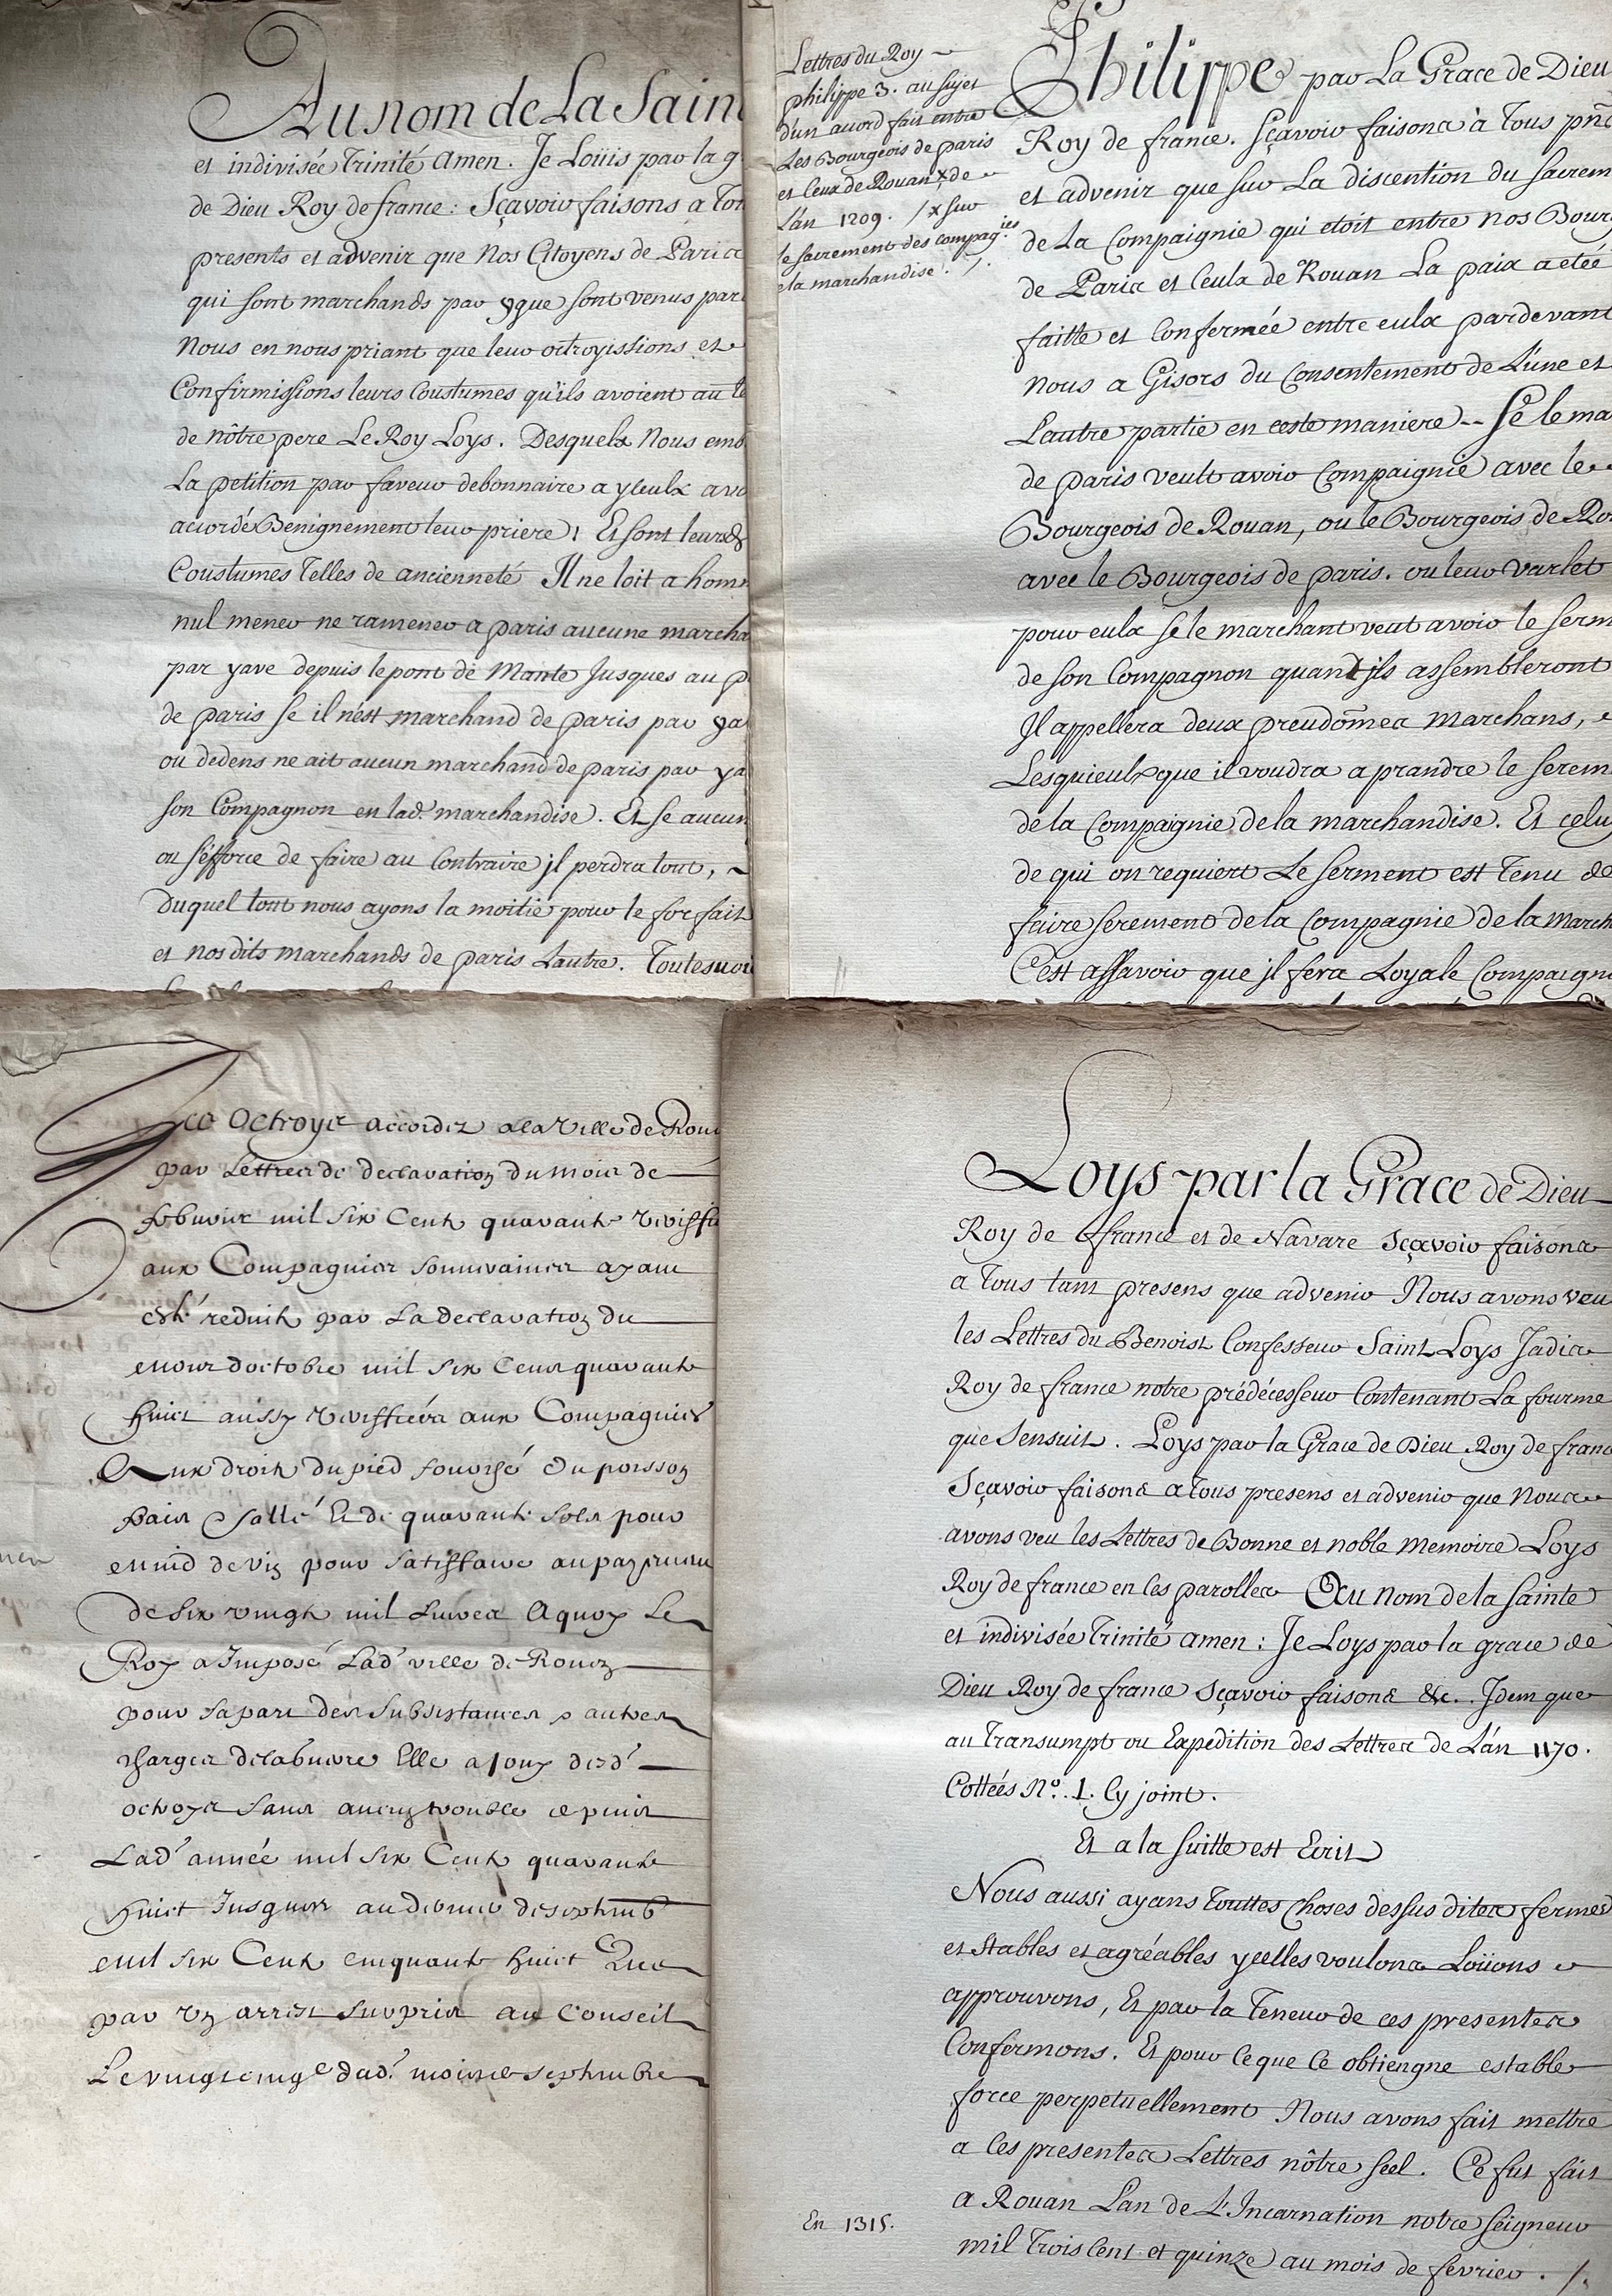 Au nom de La Sain
et indivisée Trinité Amen. Je Loüis par la g
de Dieu Roy de france: Sçavoir faisons a Tou
presents et advenir que Nos Citoyens de Paris
qui sont marchands par yque sont venus par
Nous en nous priant que leur octroyissions et
Confirmissions leurs Coustumes qu'ils avoient au te
de nôtre pere Le Roy Loys. Desquels Nous emb
La petition par faveur debonnaire a yceulx avo
accordé Benignement leur priere; Et sont leurs
Coustumes Telles de ancienneté Il ne loit a hom
nul mener ne ramener a paris aucune marcha
par yave depuis le pont de Mante Jusques au p
de paris se il n'est marchand de paris par ya
ou dedens ne ait aucun marchand de paris par ya
son Compagnon en lad. marchandise. Et se aucun
ou s'efforce de faire au Contraire jl perdra tout,
Duquel tout nous ayons la moitié pour le forfait
et nosdits marchands de paris Lautre. Toutesvoi
Lettres du Roy
philippe 3. au sujet
d'un acord fait entre
Les Bourgeois de paris
et Ceux de Rouan x de
L'an 1209. / x sur
le sacrement des compag.ies
de la marchandise. /.
Philippe par La Grace de Dieu
Roy de france. Sçavoir faisons à Tous pñs
et advenir que sur La discention du sacrem
de La Compaignie qui etoit entre nos Bourg
de Paris et Ceulx de Rouan La paix a etée
faitte et Confermée entre eulx pardevant
nous a Gisors du Consentement de L'une et
Lautre partie en ceste maniere -- Se le ma
de paris veult avoir Compaignie avec le
Bourgeois de Rouan, ou le Bourgeois de Ro
avec le Bourgeois de paris. ou leur varlet
pour eulx se le marchant veut avoir le serm
de son Compagnon quand jls assembleront
Il appellera deux preudõmes Marchans,
Lesquieulx que il voudra a prandre le serem
de la Compaignie de la marchandise. Et celuy
de qui on requiert Le serment est Tenu de
faire serement de la Compagnie de la march
C'est assavoir que jl fera Loyale Compaigni
Les Octroys accordez a la Ville de Roue
par Lettres de declaration du mois de
febvrier mil six Cent quarante
aux Compagnies souveraines ayant
esté reduits par La declaration du
mois doctobre mil six Cens quarante
huict aussy veriffiées aux Compagnies
Aux droits du pied fourché Du poisson
frais Sallé Et de quarante sols pour
muid de vin pour satisfaire au payement
De six vingt mil Livres Aquoy Le
Roy a Imposé Lad' ville de Rouen
pour sa part des subsistances & autres
charges delabvere Elle a Jouy desd'
octroys sans aucun trouble depuis
Lad' année mil six Cent quarante
huict Jusques au dernier de septemb'
mil six Cent cinquante huict Que
par un arrest surpris au Conseil
Le vingt cinq.e dud.' mois de septembre
Loys par la Grace de Dieu
Roy de ffrance et de Navare Sçavoir faisons
a Tous tant presens que advenir Nous avons veu
les Lettres du Benoist Confesseur Saint Loys Jadis
Roy de france notre prédécesseur Contenant La fourme
que s'ensuit. Loys par la Grace de Dieu Roy de franc
Sçavoir faisons a Tous presens et advenir que Nous
avons veu les Lettres de Bonne et noble Memoire Loys
Roy de france en ces parolles Au Nom de la sainte
et indivisée Trinité Amen: Je Loys par la grace de
Dieu Roy de france Sçavoir faisons &c.. Idem que
au Transumpt ou Expedition des Lettres de L'an 1170.
Cottées N.o 1. Cy joint.
Et a la suitte est Ecrit
Nous aussi ayans Touttes Choses dessus dites fermes
et stables et agréables ycelles voulons Loüons et
approuvons, Et par la Teneur de ces presentes
Confermons. Et pour Ceque Ce obtiengne estable
force perpetuellement Nous avons fait mettre
a Ces presentes Lettres nôtre seel. Ce fut fait
a Rouan L'an de L'Incarnation notre Seigneur
En 1315.
mil Trois Cent et quinze au mois de fevrier. /.